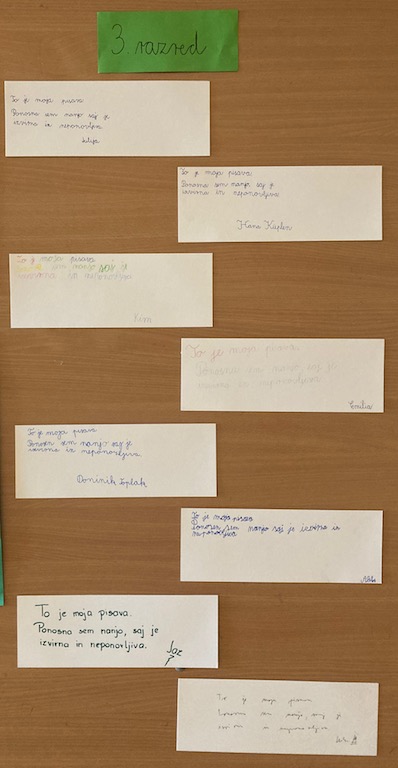 3. razred
To je moja pisava
Ponosna sem nanjo saj je
izvirna in neponovljiva
Julija
To je moja pisava
Ponosna sem nanjo saj je
izvirna in neponovljiva
Hana Kaplen
To je moja pisava
sem nanjo saj je
izvirna in neponovljiva
Kim
To je moja pisava
Ponosna sem nanjo saj je
izvirna in neponovljiva
Emilia
To je moja pisava
Ponosen sem nanjo saj je
izvirna in neponovljiva.
Dominik Toplak
To je moja pisava
Ponosen sem nanjo saj je izvirna in
neponovljiva
To je moja pisava.
Ponosna sem nanjo, saj je
izvirna in neponovljiva.
Jaz
To je moja pisava
sem nanjo, saj je
in neponovljiva